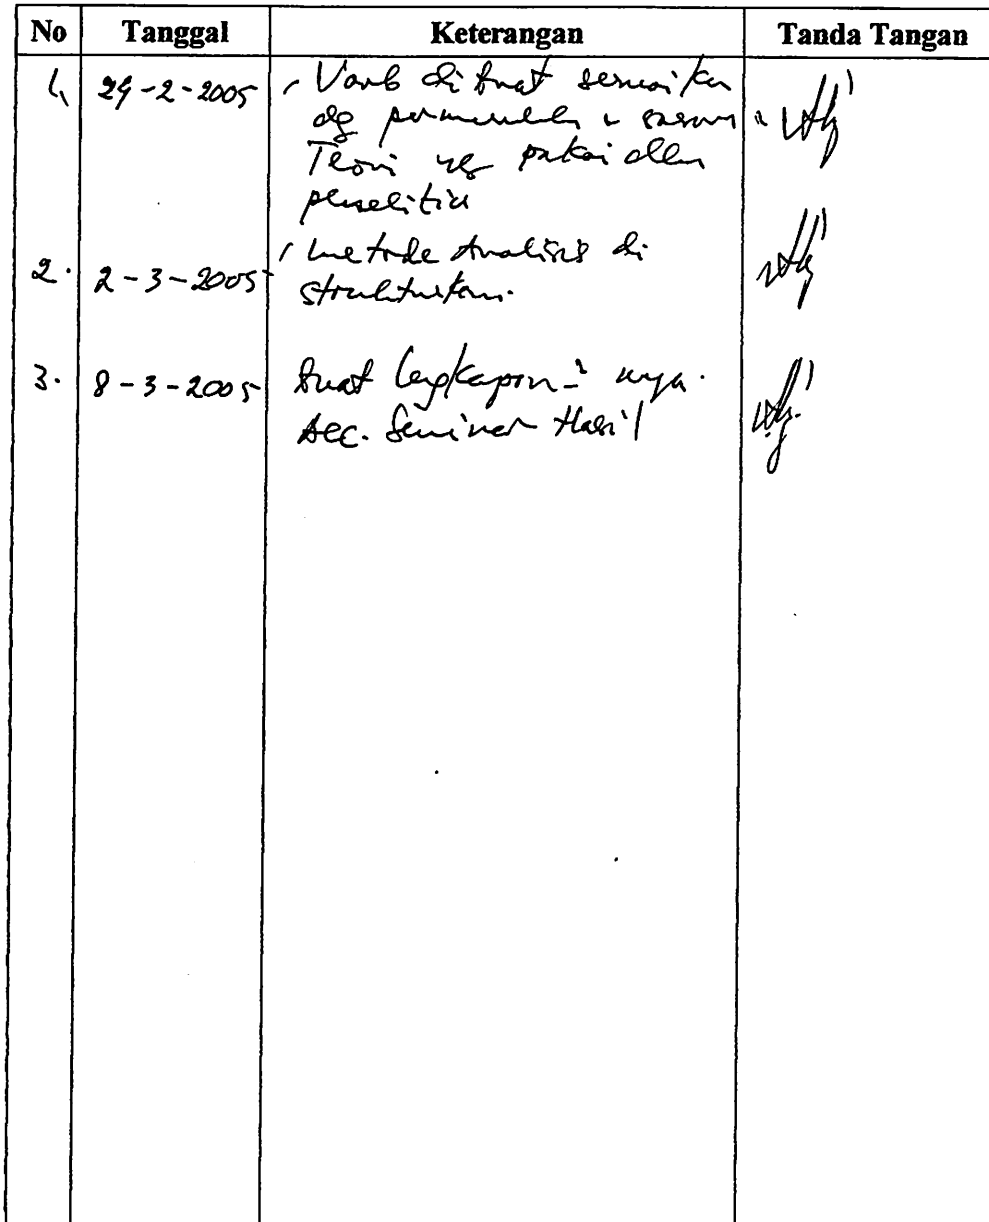 No Tanggal Keterangan Tanda Tangan
1, 24-2-2005 Varb di buat sesuaikan
dg permasalah
Teori yg pakai dlm
penelitia
2. 2-3-2005 Metode Analisis di
strukturkan.
3. 8-3-2005 buat lengkapan-2 nya.
Acc. Seminar Hasil